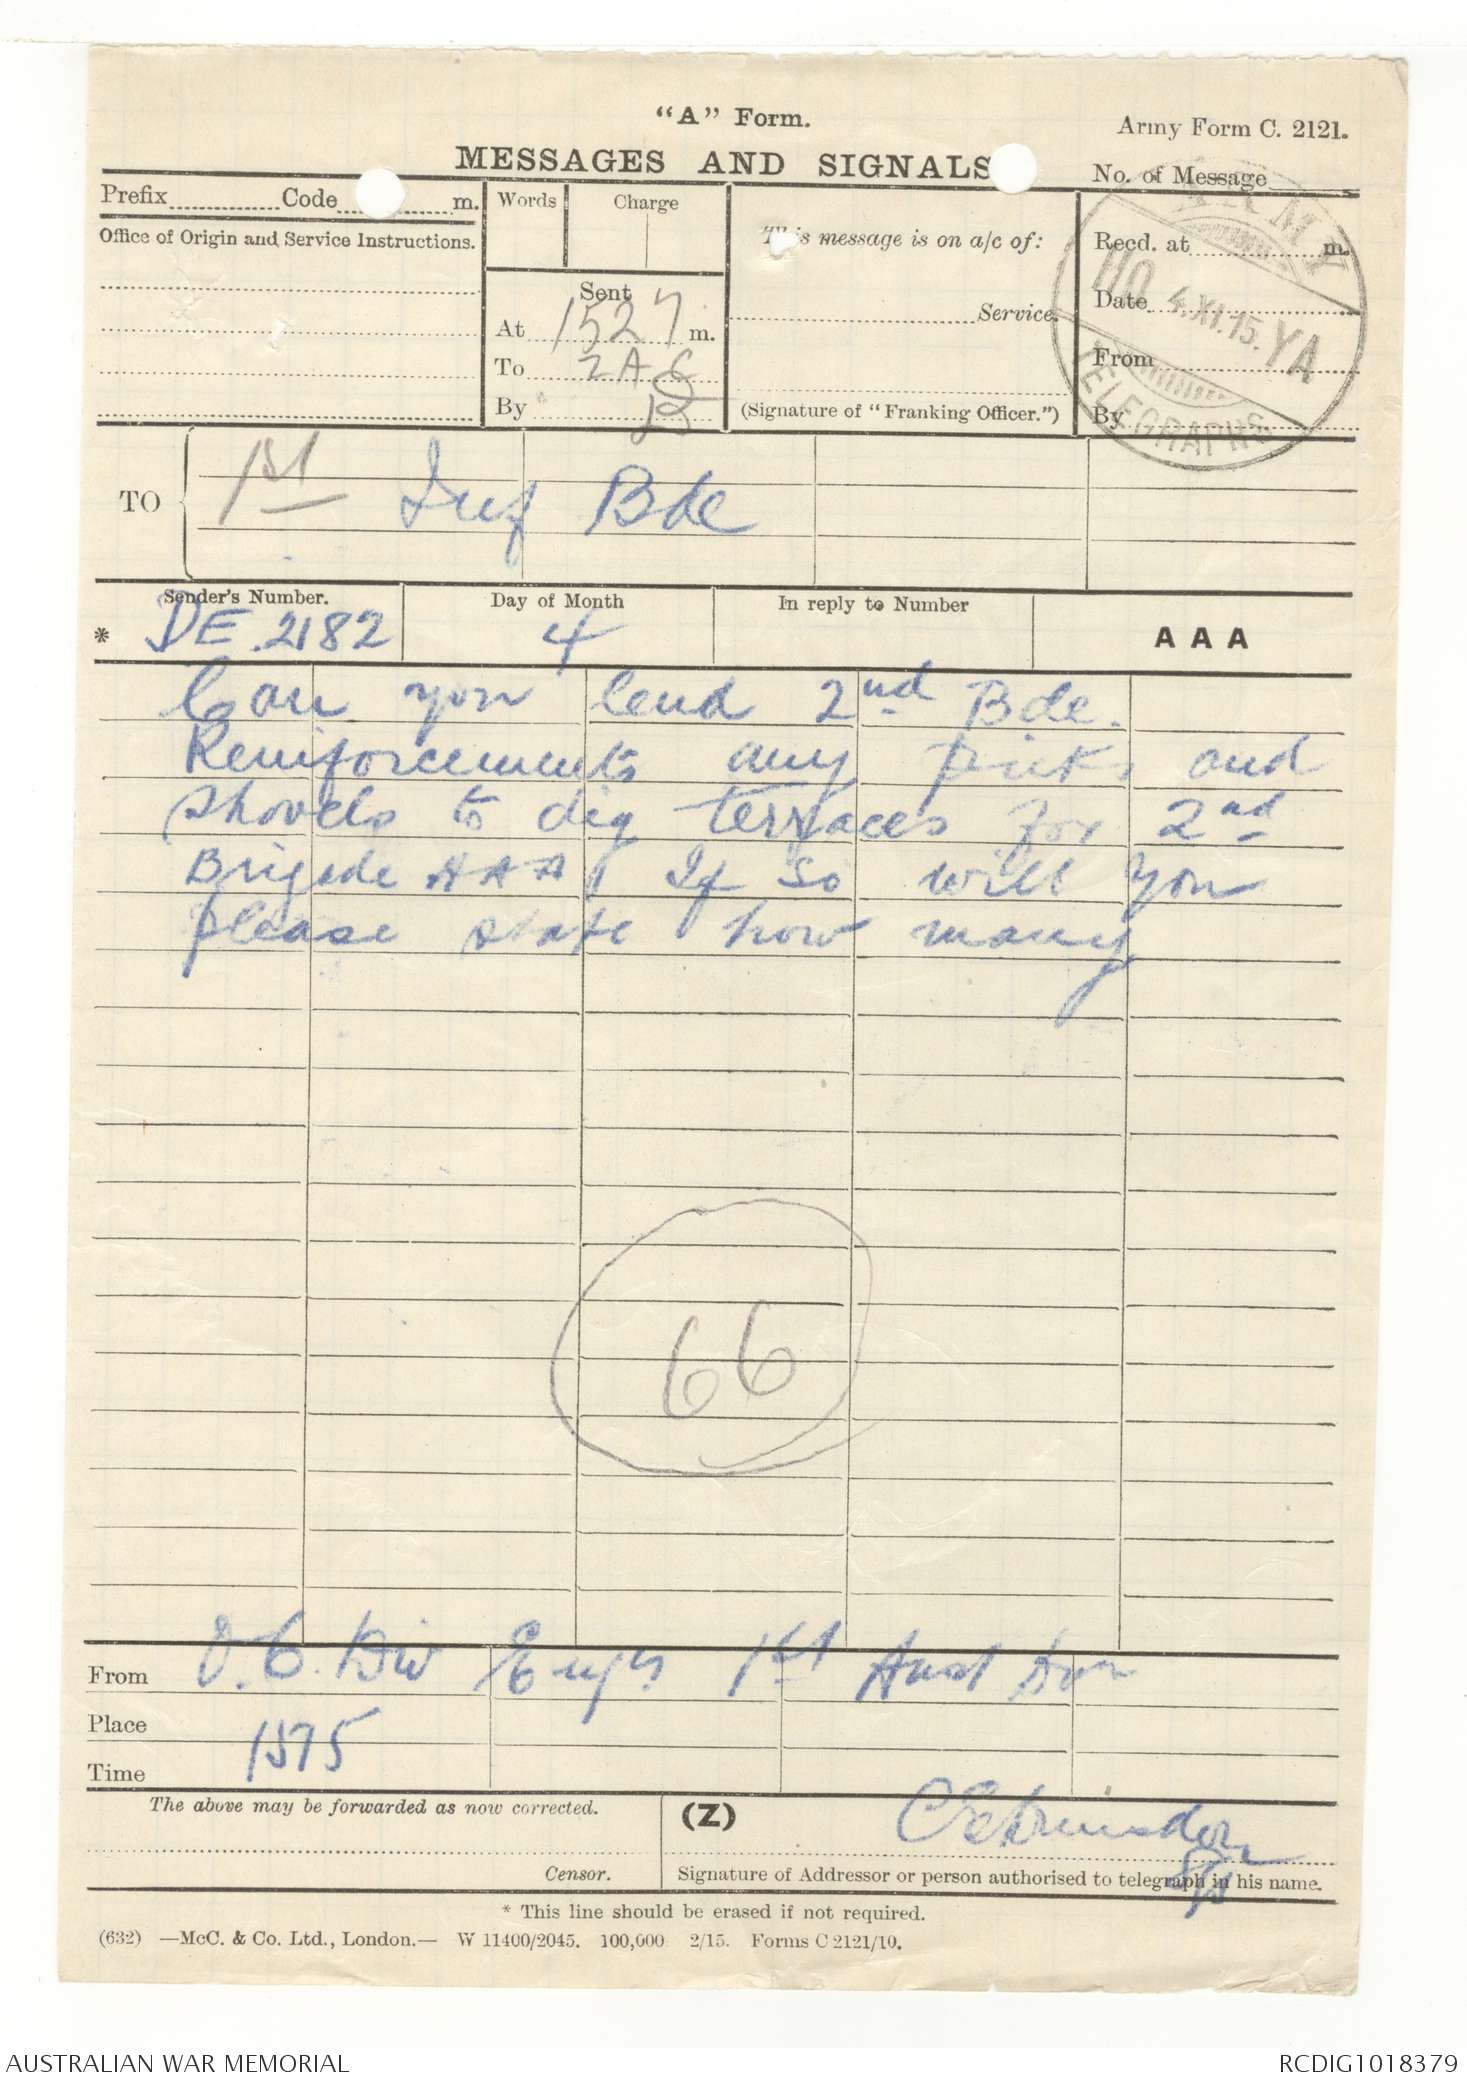 "A" Form.
Army Form C. 2121.
MESSAGES AND SIGNALS
No. of Message
Prefix Code m.
Words Charge
This message is on a/c of:
Recd. at m.
Office of Origin and Service Instructions.
Sent
At 1527 m.
To ZAC
By
Service.
(Signature of "Franking Officer.")
Date
From
By
ARMY
4.XI.15. YA
TELEGRAPHS
TO 1st Inf Bde
Sender's Number. Day of Month In reply to Number
* DE.2182 4 AAA
Can you lend 2nd Bde.
Reinforcements any picks and
shovels to dig terraces for 2nd
Brigade AAA If so will you
please state how many
66
From O.C. Div Engrs 1st Aust Divn
Place
Time 1515
The above may be forwarded as now corrected.
(Z)
Censor.
Signature of Addressor or person authorised to telegraph in his name.
* This line should be erased if not required.
(632) —McC. & Co. Ltd., London.— W 11400/2045. 100,000 2/15. Forms C 2121/10.
AUSTRALIAN WAR MEMORIAL
RCDIG1018379